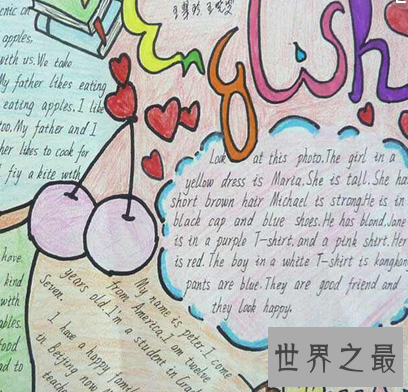 English
enic on
apples,
with us. We take
My father likes eating
eating apples. I like
too. My father and I
her likes to cook for
fiy a kite with
Look at this photo. The girl in a
yellow dress is Maria. She is tall. She has
short brown hair Michael is strong. He is in
black cap and blue shoes. He has blond. Jane
is in a purple T-shirt, and a pink shirt. Her
is red. The boy in a white T-shirt is kangkang
pants are blue. They are good friend and
they look happy.
have
kind
with
ables.
food
ad to
My name is peter. I come
from America. I am twelve
years old. I'm a student in Grade
Seven.
I have a happy family
in Beijing now
teacher
世界之最